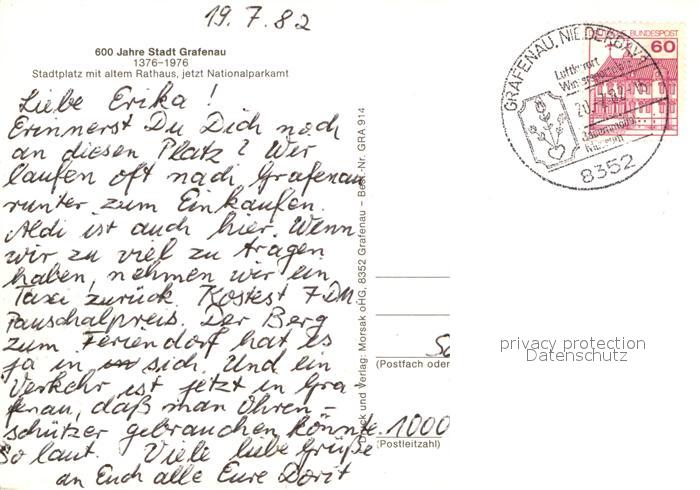 19.7.82
600 Jahre Stadt Grafenau
1376–1976
Stadtplatz mit altem Rathaus, jetzt Nationalparkamt
Liebe Erika !
Erinnerst Du Dich noch
an diesen Platz? Wir
laufen oft nach Grafenau
runter zum Einkaufen.
Aldi ist auch hier. Wenn
wir zu viel zu tragen
haben, nehmen wir ein
Taxi zurück. Kostest 7 DM
Pauschalpreis. Der Berg
zum Feriendorf hat es
ja in sich. Und ein
Verkehr ist jetzt in Gra
fenau, daß man Ohren-
schützer gebrauchen könnte.
So laut. Viele liebe Grüße
an Euch alle Eure Dorit
Druck und Verlag: Morsak oHG, 8352 Grafenau – Best. Nr. GRA 914
GRAFENAU, NIEDERBAY
Luftkurort
8352
BUNDESPOST
60
(Postfach oder
1000
(Postleitzahl)
privacy protection
Datenschutz